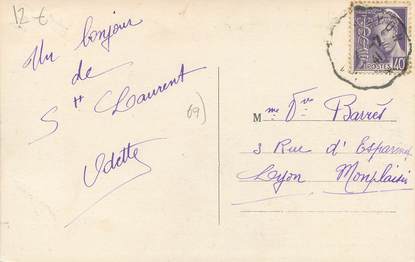 12 €
Un bonjour
de
St Laurent
Odette
69)
POSTES 40
Mme Vve Barrès
3 Rue d'Esparon
Lyon Monplaisir